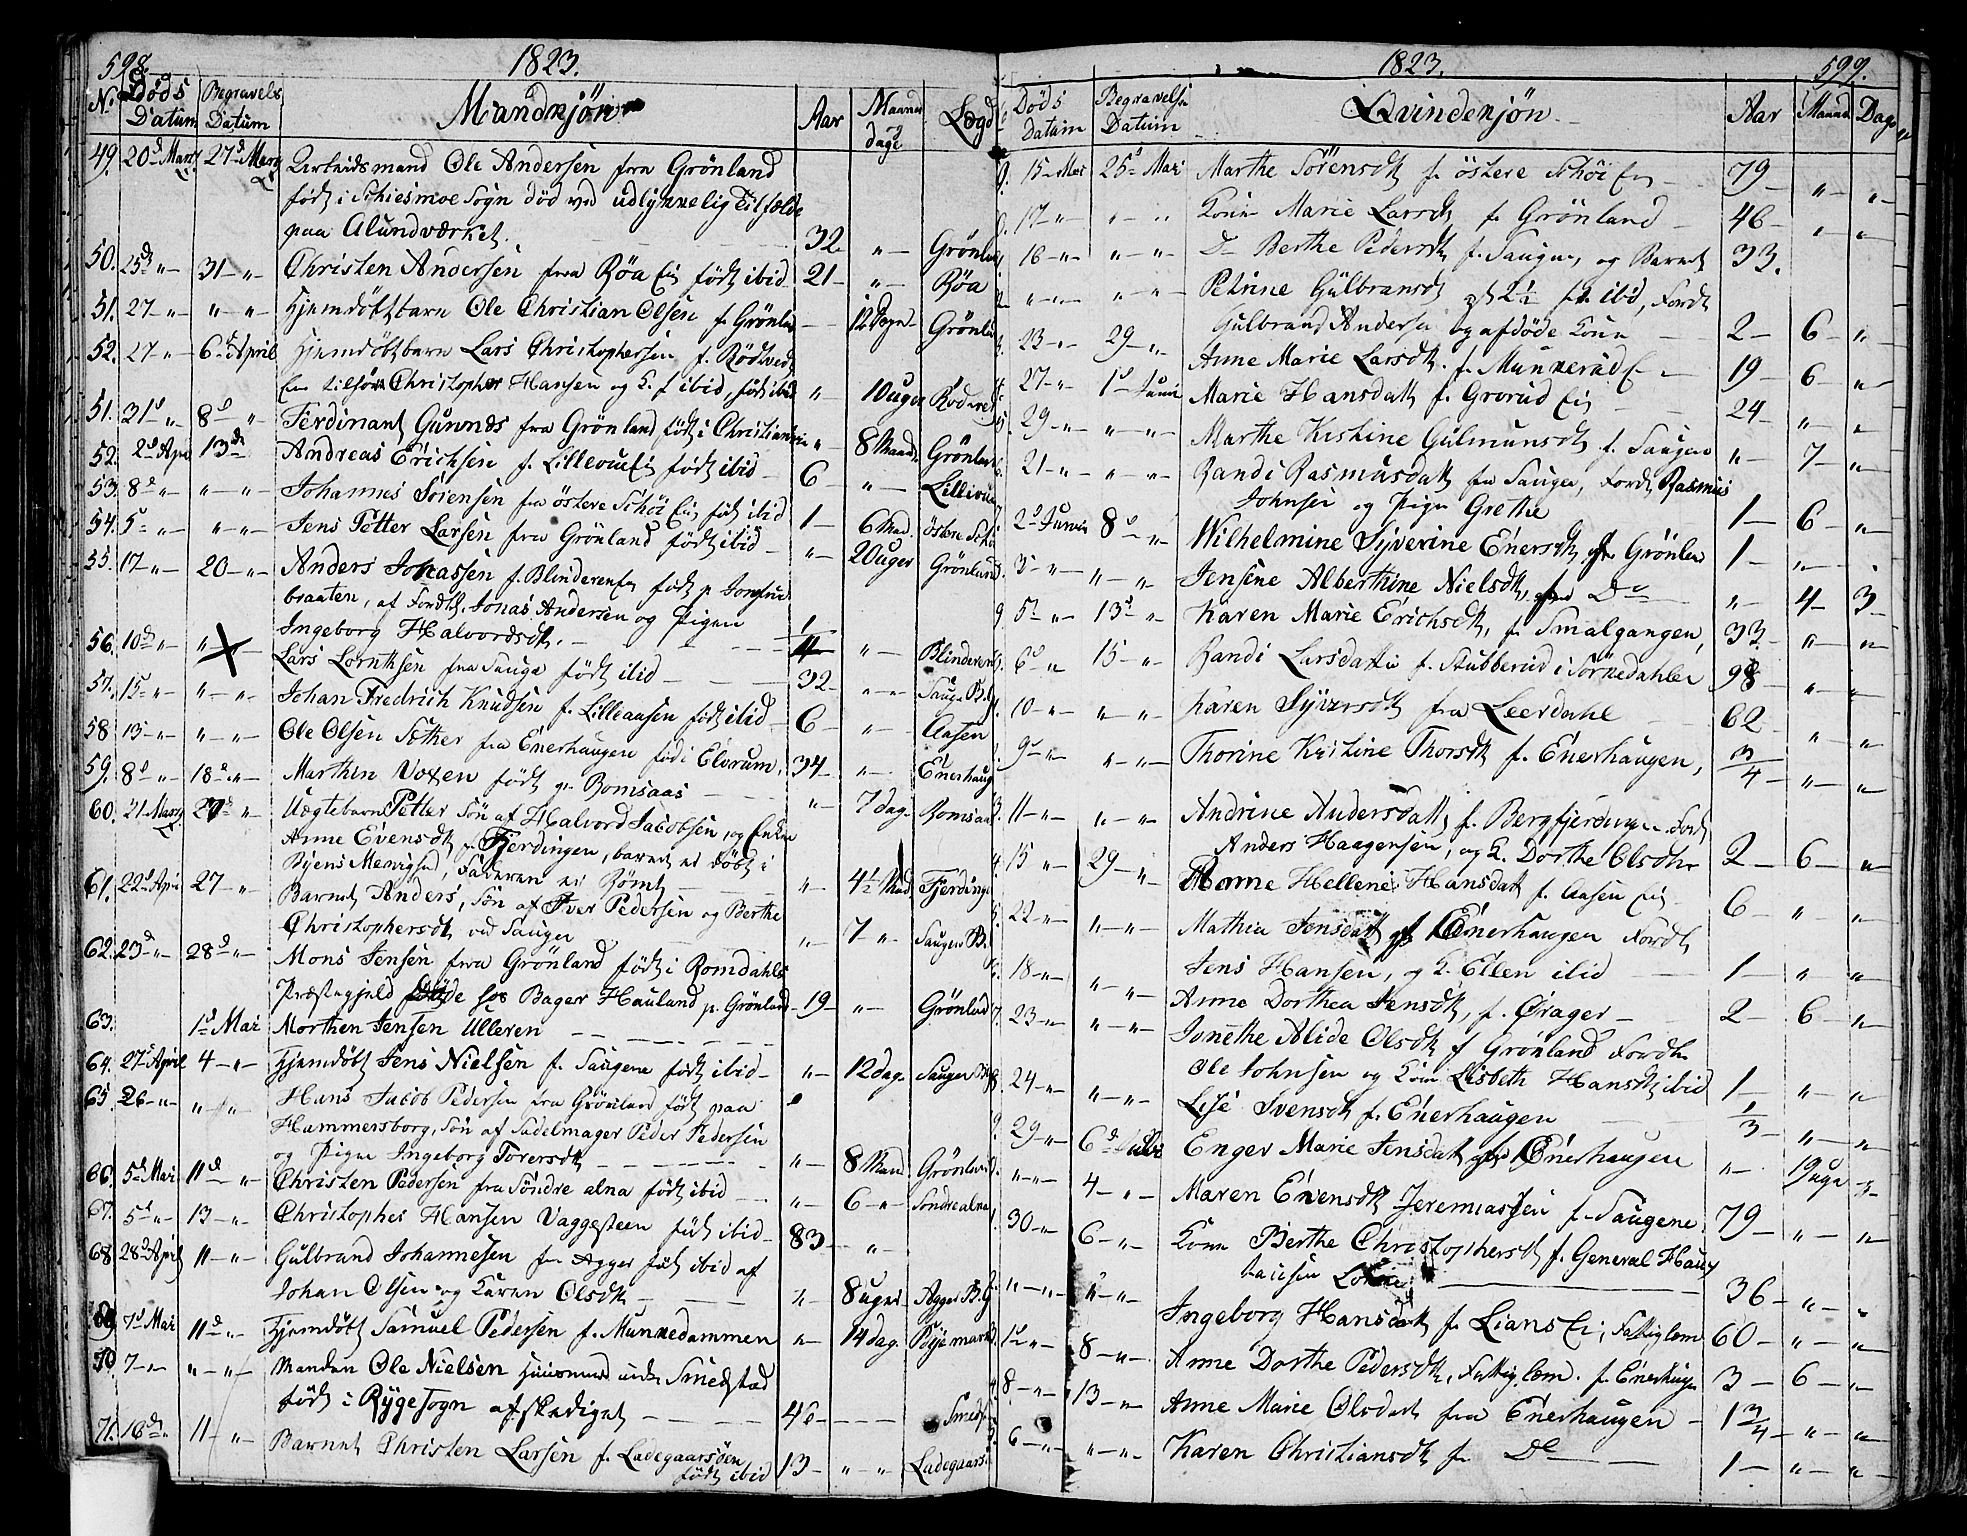 598.
1823.
No Døds Datum Begravels Datum Mandkjön Aar Maaned dage Lægd
49. 20d Marty 27d Marty Arbeidsmand Ole Andersen fra Grönland
födt i Schiesmoe Sogn död ved ulykkelig Tilfælde
paa Alundværket. 32 " Grönla
50. 25d " 31 " Christen Andersen fra Röa Eie födt ibid 21 " Röa
51. 27 " " " Hjemdöbt barn Ole Christian Olsen f. Grönla 12 Dogn Grönla
52. 27 " 6d April Hjemdöbt barn Lars Christophersen f. Rödtved
Eie tilför Christopher Hansen og K. f ibid, födt ibid " 10 uger Rödtved
51. 31d " 8d " Ferdinant Gunnes fra Grönland födt i Christiania " 8 Maand Grönlan
52. 2d Apr 13de Andreas Erichsen f. Lillevue Ei födt ibid 6 " Lillivue
53. 8d " " " Johannes Sörensen fra östere Schöi Ei födt ibid 1 6 Mad. östre Schö
54. 5 " " " Jens Petter Larsen fra Grönland födt ibid " 20 uger Grönland
55. 17 " 20 " Anders Johassen f. Blinderen Ei födt p.
braaten, af Fordt. Jonas Andersen og Pigen
Ingeborg Halvordsdt. 4 " Blinderen
56. 10d " " Lars Lorntsen fra Sauga födt ibid 32 " Sauge B.
57. 15 " " " Johan Fredrich Knudsen f. Lilleaasen födt ibid 6 " Aasen
58 13 " " " Ole Olsen Sother fra Enerhaugen födt i Elvrum. 34 " Enerhaug
59. 8d " 18d " Marthin Voxen födt p. Romsaas " 7 dag. Romsaas
60. 21 Marty 27d " Uægtebarn Petter Sön af Halvord Jacobsen, og Enken
Anne Evensdt p. Fjerdingen, barnet ei döbt i
Byens Menighed, Faderen ei Römt " 4½ Mad Fjerdinge
61. 22d Apri 27 " Barnet Anders, Sön af Iver Pedersen og Berthe
Christophersdt ved Sauger " 7 " Sauger B.
62. 23d " 28d " Mons Jensen fra Grönland födt i Romdahls
Præstegjeld döde hos Bager Hauland p. Grönland 19 " Grönlad
63. 1d Mai Morthen Jensen Ulleren
64. 27d April 4 " Hjemdöbt Jens Nielsen f. Saugene födt ibid " 12 dag. Sauger
65. 26 " " " Hans Jacob Pedersen fra Grönland födt paa
Hammersborg, Sön af Sadelmager Peder Pedersen
og Pigen Ingeborg Torersdt " 8 Man Grönland
66. 5d Mai 11d " Christen Pedersen fra Söndre alna födt ibid " 6 " Söndre alna
67. 5d " 13 " Christopher Hansen Vaggesteen födt ibid 83 "
68. 28d April 11 " Gulbrand Johannesen fra Agger födt ibid af
Johan Olsen og Karen Olsdt " 8 uger Agger B.G
69. 7d Mai 11d " Hjemdöbt Samuel Pedersen f. Munkedammen " 14 dag. Byemark
70. 7 " " " Manden Ole Nielsen Huusmand under Smedstad
födt i Rygesogn afskediget 46 Smedst
71. 16d " 11 " Barnet Christen Larsen f. Ladegaarsöen
födt ibid 13 " " Ladegaars
1823.
599.
Döds Datum Begravelse Datum Qvindenjön Aar Maaned Dage
15 Mai 25d Mai Marthe Sörensdt f. östere Schöi Eie 79 " "
17 " " " Konen Marie Larsdt f. Grönland 46 " "
16 " " " Do Berthe Pedersdt f. Sauger, og Barnet 33.
" " " " Petrine Gulbransdt 2½ fr. ibid, Fordt
Gulbrand Andersen og afdöde Kone 2 6 "
23 " 29 " Anne Marie Larsdt. f. Munkerud E 19 6 "
27 " 1d Juni Marie Hansdatt f. Grorud Eie 24 " "
29 " " " Marthe Kistine Gulmunsdt f. Saugen " 7 "
21 " " " Randi Rasmusdatt fra Sauger, Fordt Rasmus
Johnsen og Pigen Grethe 1 6 "
2d Juni 8d " Wilhelmine Syverine Enersdt fr Grönlan 1 "
3 " " " Jensine Alberthine Nielsdt, fra Do " 4 3
5d " 13d " Karen Marie Erichsdt, f. Smalgangen, 33. " "
6d " 15 " Randi Larsdatter f. Stubberud i Sörkedahlen 98 " "
10 " " " Karen Syversdt fra Leerdahl 62 " "
9d " " " Thorine Kristine Thorsdt f. Enerhaugen, 3/4 " "
11 " " " Andrine Andersdatt f. Bergfjerdingen Fordt
Anders Haagensen, og K. Dorthe Olsdtr 2 6 "
15 " 29 " Anne Hellene Hansdatt f. Aasen Eie 6 " "
22 " " " Mathia Jensdatt af Enerhaugen Fordt
Jens Hansen, og K. Ellen ibid 1 " "
18 " " " Anne Dorthea Jensdt, f. Örager 2 6 "
23 " " " Jonethe Alide Olsdt f Grönland Fordt.
Ole Johnsen og Kone Lisbeth Hansdt ibid 1 " "
24 " " " Lise Svensdt f. Enerhaugen 1/3 " "
29 " 6d Julii Enger Marie Jensdatt fra Enerhaugen " 19 uge 3
" " 4 " Maren Evensdt Jeremiassen f. Saugene 79 " "
30 " 6 " Konen Berthe Christophersdt f. General Haux
tausen Lökke 36 " "
" " " " Ingeborg Hansdatt f. Lians Ei, Fattiglem 60 " "
1d " 8 " Anne Dorthe Pedersdt, Fattiglem. f. Enerhaugen 3 6 "
8 " 13 " Anne Marie Olsdatt fra Enerhaugen 1 3/4 " "
6 " " " Karen Christiansdt f. Do 1 " "